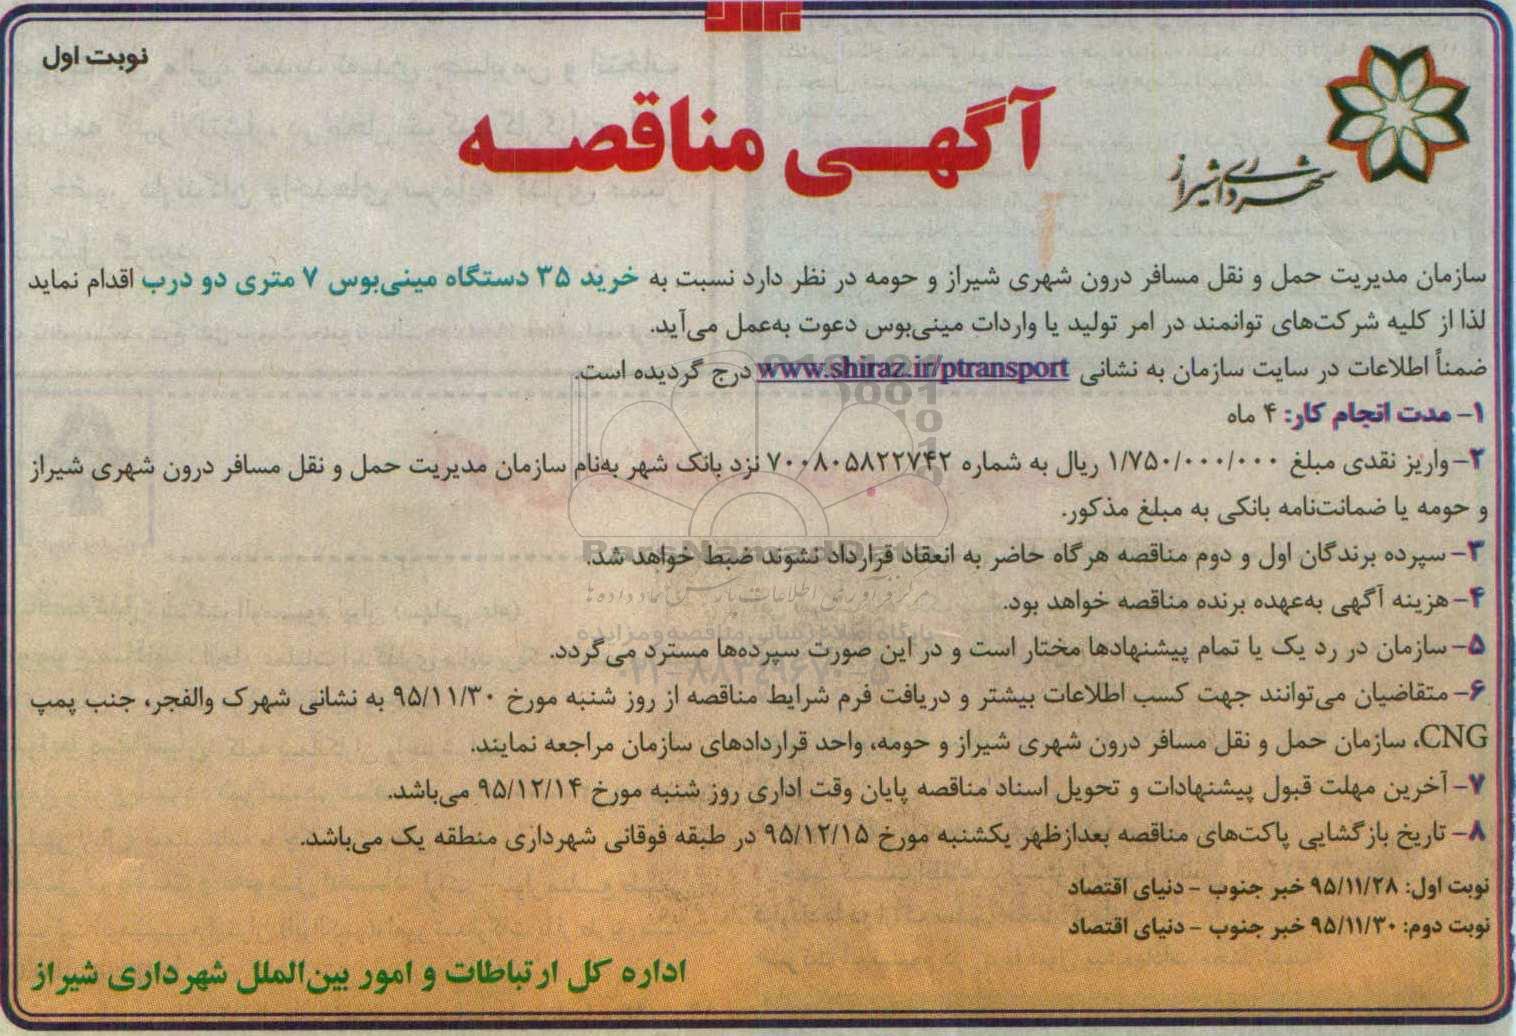 نوبت اول
شهرداری شیراز
آگهی مناقصه
سازمان مدیریت حمل و نقل مسافر درون شهری شیراز و حومه در نظر دارد نسبت به خرید ۳۵ دستگاه مینی‌بوس ۷ متری دو درب اقدام نماید
لذا از کلیه شرکت‌های توانمند در امر تولید یا واردات مینی‌بوس دعوت به‌عمل می‌آید.
ضمناً اطلاعات در سایت سازمان به نشانی www.shiraz.ir/ptransport درج گردیده است.
۱- مدت انجام کار: ۴ ماه
۲- واریز نقدی مبلغ ۱/۷۵۰/۰۰۰/۰۰۰ ریال به شماره ۷۰۰۸۰۵۸۲۲۷۴۲ نزد بانک شهر به‌نام سازمان مدیریت حمل و نقل مسافر درون شهری شیراز
و حومه یا ضمانت‌نامه بانکی به مبلغ مذکور.
۳- سپرده برندگان اول و دوم مناقصه هرگاه حاضر به انعقاد قرارداد نشوند ضبط خواهد شد.
۴- هزینه آگهی به‌عهده برنده مناقصه خواهد بود.
۵- سازمان در رد یک یا تمام پیشنهادها مختار است و در این صورت سپرده‌ها مسترد می‌گردد.
۶- متقاضیان می‌توانند جهت کسب اطلاعات بیشتر و دریافت فرم شرایط مناقصه از روز شنبه مورخ ۹۵/۱۱/۳۰ به نشانی شهرک والفجر، جنب پمپ
CNG، سازمان حمل و نقل مسافر درون شهری شیراز و حومه، واحد قراردادهای سازمان مراجعه نمایند.
۷- آخرین مهلت قبول پیشنهادات و تحویل اسناد مناقصه پایان وقت اداری روز شنبه مورخ ۹۵/۱۲/۱۴ می‌باشد.
۸- تاریخ بازگشایی پاکت‌های مناقصه بعدازظهر یکشنبه مورخ ۹۵/۱۲/۱۵ در طبقه فوقانی شهرداری منطقه یک می‌باشد.
نوبت اول: ۹۵/۱۱/۲۸ خبر جنوب - دنیای اقتصاد
نوبت دوم: ۹۵/۱۱/۳۰ خبر جنوب - دنیای اقتصاد
اداره کل ارتباطات و امور بین‌الملل شهرداری شیراز